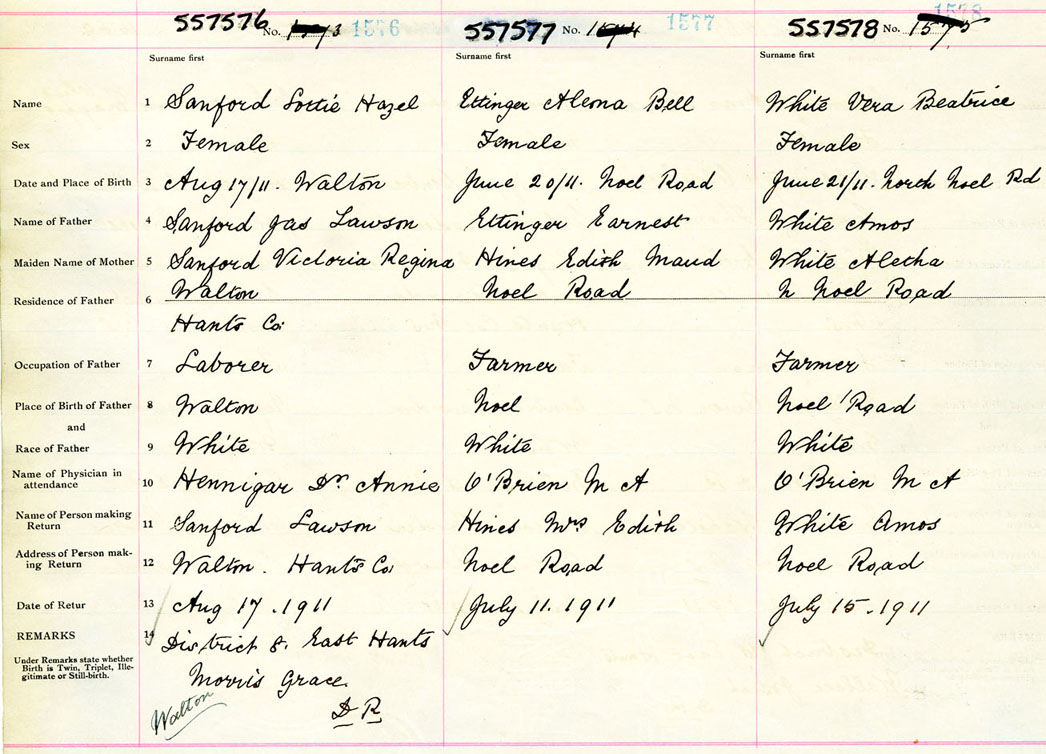 557576 No. 1576 557577 No. 1577 557578 No. 1578
Surname first Surname first Surname first
Name 1 Sanford Lottie Hazel Ettinger Alema Bell White Vera Beatrice
Sex 2 Female Female Female
Date and Place of Birth 3 Aug 17/11. Walton June 20/11. Noel Road June 21/11. North Noel Rd
Name of Father 4 Sanford Jas Lawson Ettinger Earnest White Amos
Maiden Name of Mother 5 Sanford Victoria Regina Hines Edith Maud White Aletha
Residence of Father 6 Walton Noel Road N Noel Road
Hants Co.
Occupation of Father 7 Laborer Farmer Farmer
Place of Birth of Father 8 Walton Noel Noel Road
and
Race of Father 9 White White White
Name of Physician in
attendance 10 Hennigar Dr. Annie O'Brien M A O'Brien M A
Name of Person making
Return 11 Sanford Lawson Hines Mrs Edith White Amos
Address of Person mak-
ing Return 12 Walton. Hants Co. Noel Road Noel Road
Date of Retur 13 Aug 17. 1911 July 11. 1911 July 15. 1911
REMARKS 14 District 8. East Hants
Under Remarks state whether
Birth is Twin, Triplet, Ille-
gitimate or Still-birth.
Morris Grace.
Walton D R